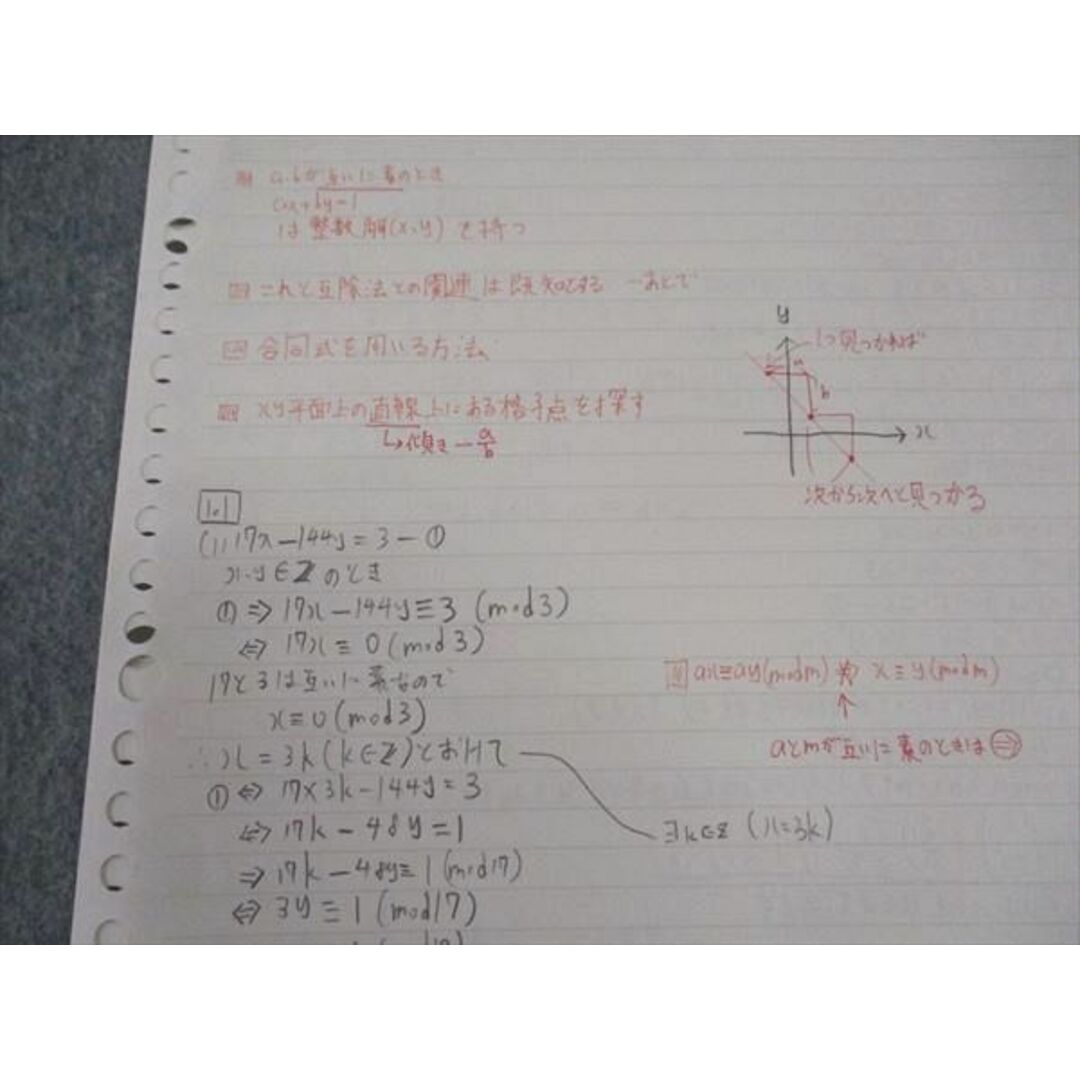 a,bが互いに素のとき
ax+by=1
は整数解(x,y)を持つ
これと互除法との関連は既知とする －あとで
合同式を用いる方法
xy平面上の直線上にある格子点を探す
↳傾き －a/b
y
1つ見つかれば
a
b
x
次から次へと見つかる
1.1
(1) 17x－144y＝3－①
x,y∈Zのとき
①⇒17x－144y≡3 (mod3)
⇔ 17x≡0 (mod3)
17と3は互いに素なので
x≡0 (mod3)
∴x＝3k (k∈Z)とおけて
∃k∈Z (x=3k)
①⇔ 17×3k－144y＝3
⇔ 17k－48y＝1
⇒ 17k－48y≡1 (mod17)
⇔ 3y≡1 (mod17)
ax≡ay(modm) ⇏ x≡y(modm)
↑
aとmが互いに素のときは⇒